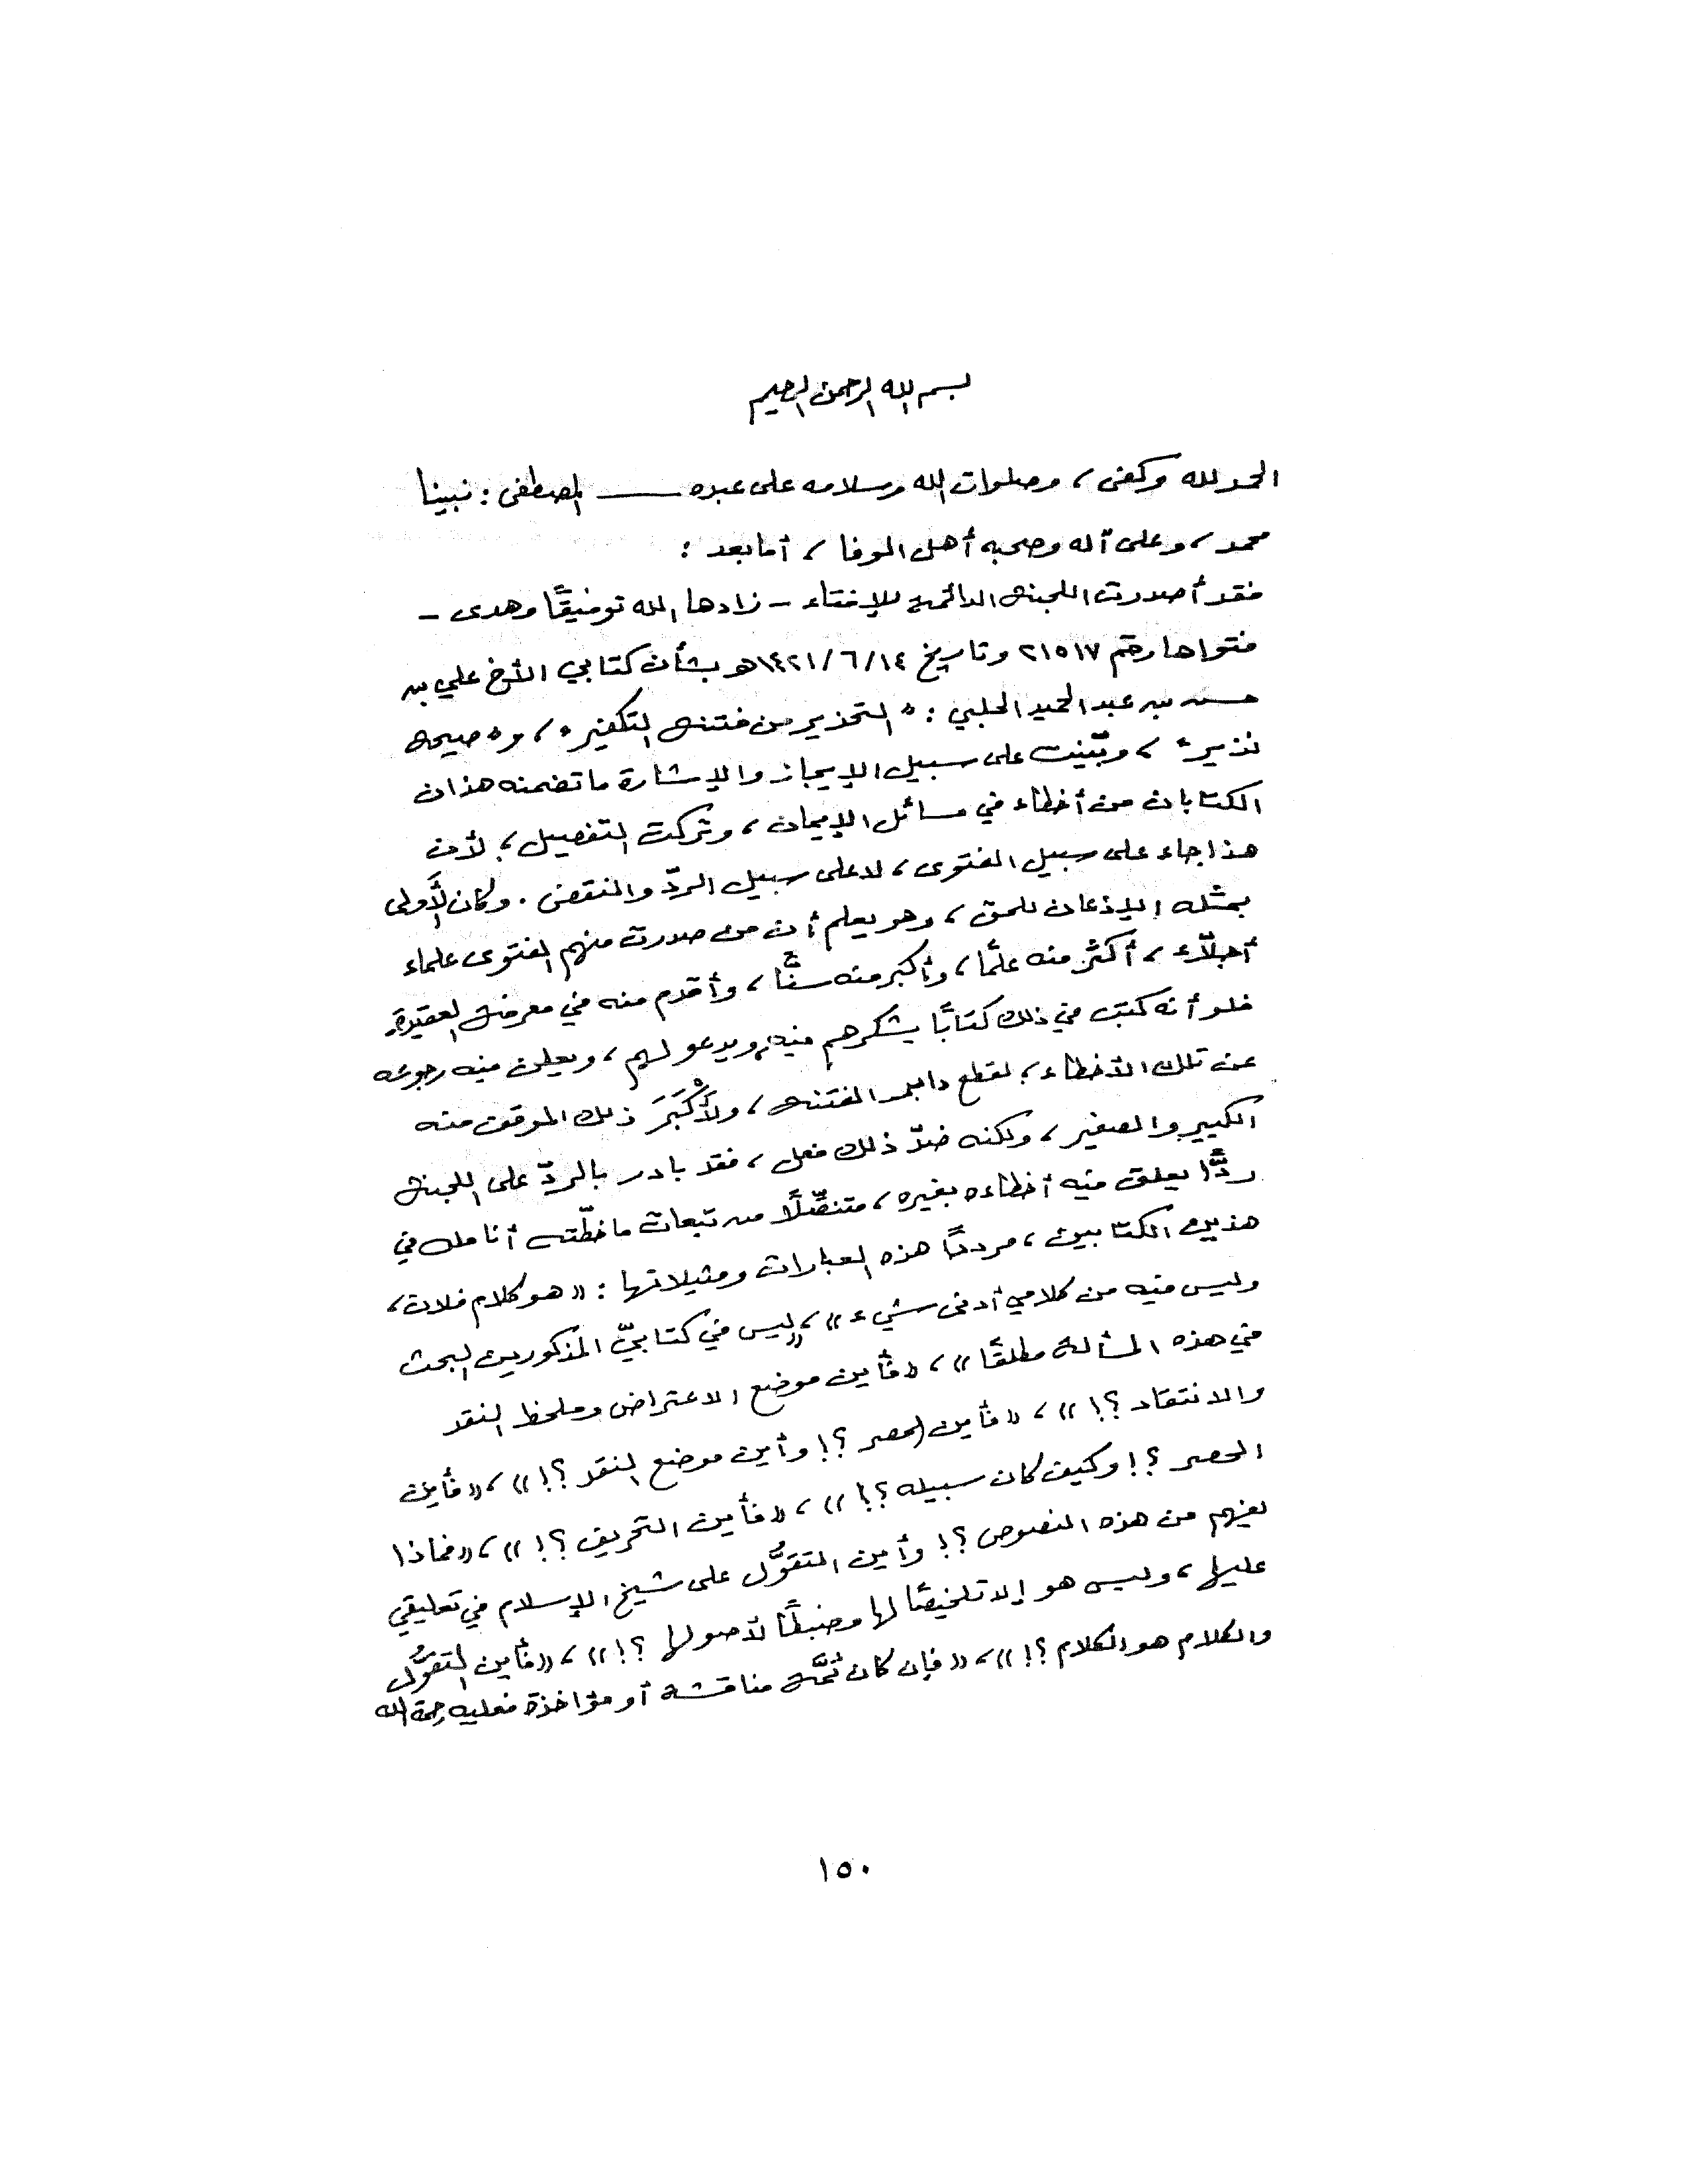 بسم الله الرحمن الرحيم
الحمد لله وكفى، وصلوات الله وسلامه على عبده ــــــ المصطفى: نبينا
محمد، وعلى آله وصحبه أهل الوفا، أما بعد:
فقد أصدرت اللجنة الدائمة للإفتاء - زادها الله توفيقًا وهدى -
فتواها رقم ٢١٥١٧ وتاريخ ١٤٢١/٦/١٤هـ بشأن كتابي الأخ علي بن
حسن بن عبد الحميد الحلبي: "التحذير من فتنة التكفير"، و"صيحة
نذير"، وبيّنت على سبيل الإيجاز والإشارة ما تضمنه هذان
الكتابان من أخطاء في مسائل الإيمان، وتركت التفصيل؛ لأن
هذا جاء على سبيل الفتوى، لا على سبيل الردّ والنقض. وكان الأَولى
بمثله الإذعان للحق، وهو يعلم أن من صدرت منهم الفتوى علماء
أجلّاء، أكثر منه علمًا، وأكبر منه سنًّا، وأقدم منه في معرفة العقيدة.
فلو أنه كتب في ذلك كتابًا يشكرهم فيه، ويدعو لهم، ويعلن فيه رجوعه
عن تلك الأخطاء؛ لقطع دابر الفتنة، ولأَكْبَرَ ذلك الموقف منه
الكبير والصغير، ولكنه ضدّ ذلك فعل، فقد بادر بالردّ على اللجنة
ردًّا يعلق فيه أخطاءه بغيره، متنصِّلًا من تبعات ما خطّته أنامله في
هذين الكتابين، مرددًا هذه العبارات ومثيلاتها: «هو كلام فلان،
وليس فيه من كلامي أدنى شيء»، «ليس في كتابيّ المذكورين البحث
في هذه المسألة مطلقًا»، «فأين موضع الاعتراض وملحظ النقد
والانتقاد؟!»، «فأين الحصر؟! وأين موضع النقد؟!»، «فأين
الحصر؟! وكيف كان سبيله؟!»، «فأين التحريف؟!»، «فماذا
يفهم من هذه النصوص؟! وأين التقوُّل على شيخ الإسلام في تعليقي
عليها، وليس هو إلا تلخيصًا لها وضبطًا لأصولها؟!»، «فأين التقوُّل
والكلام هو الكلام؟!»، «فإن كان ثمَّة مناقشة أو مؤاخذة فعليه رحمة الله
١٥٠